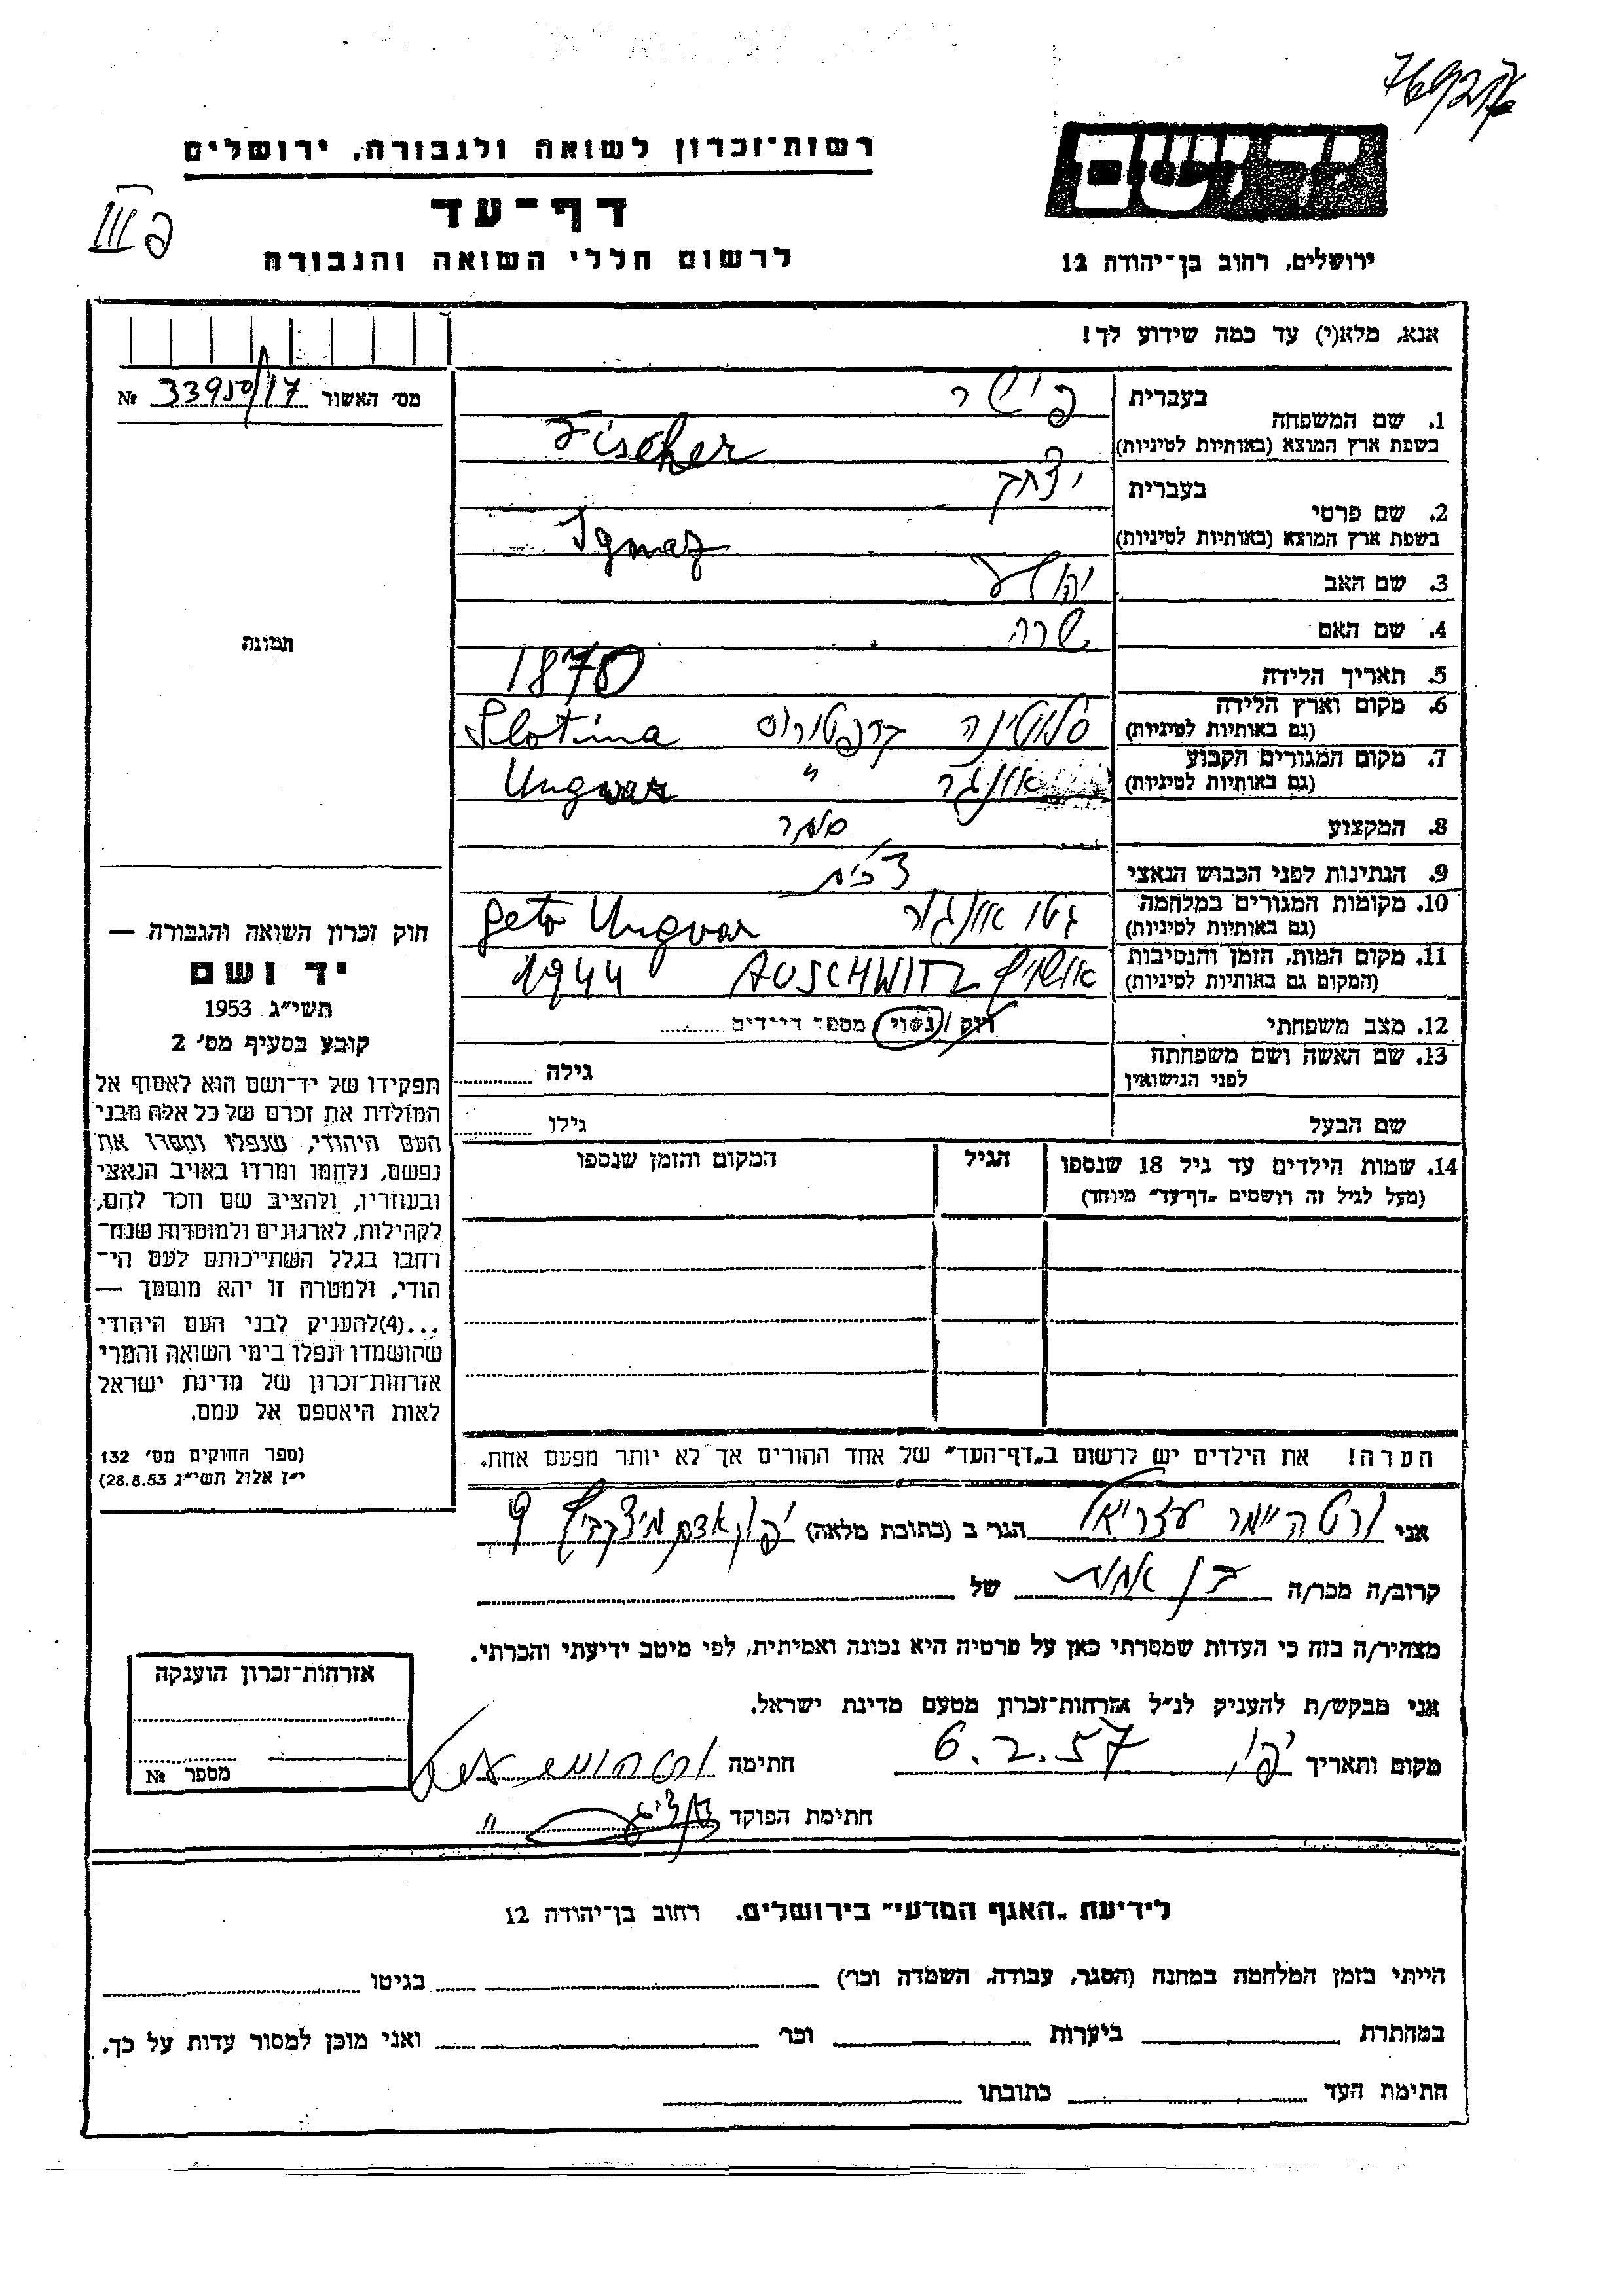 רשות־זכרון לשואה ולגבורה, ירושלים
יד ושם
דף־עד
III פ
לרשום חללי השואה והגבורה
ירושלים, רחוב בן־יהודה 12
אנא, מלא(י) עד כמה שידוע לך!
מס׳ האשור № 339
בעברית פישר
1. שם המשפחה
בשפת ארץ המוצא (באותיות לטיניות) Fischer
בעברית יצחק
2. שם פרטי
בשפת ארץ המוצא (באותיות לטיניות) Ignaz
3. שם האב יהושע
4. שם האם שרה
5. תאריך הלידה 1870
6. מקום וארץ הלידה
(גם באותיות לטיניות) סלוטינה קרפטורוס Slotina
7. מקום המגורים הקבוע
(גם באותיות לטיניות) אונגור " Ungvar
8. המקצוע סוחר
9. הנתינות לפני הכבוש הנאצי צ'כית
10. מקומות המגורים במלחמה
(גם באותיות לטיניות) גטו אונגור geto Ungvar
11. מקום המות, הזמן והנסיבות
(המקום גם באותיות לטיניות) אושויץ AUSCHWITZ 1944
12. מצב משפחתי רוק / נשוי מספר הילדים
13. שם האשה ושם משפחתה
לפני הנישואין גילה
שם הבעל גילו
14. שמות הילדים עד גיל 18 שנספו הגיל המקום והזמן שנספו
(מעל לגיל זה רושמים „דף־עד" מיוחד)
הערה! את הילדים יש לרשום ב„דף־העד" של אחד ההורים אך לא יותר מפעם אחת.
תמונה
חוק זכרון השואה והגבורה —
יד ושם
תשי״ג 1953
קובע בסעיף מס׳ 2
תפקידו של יד־ושם הוא לאסוף אל
המולדת את זכרם של כל אלה מבני
העם היהודי, שנפלו ומסרו את
נפשם, נלחמו ומרדו באויב הנאצי
ובעוזריו, ולהציב שם וזכר להם,
לקהילות, לארגונים ולמוסדות שנח־
רבו בגלל השתייכותם לעם הי־
הודי, ולמטרה זו יהא מוסמך —
...(4)להעניק לבני העם היהודי
שהושמדו ונפלו בימי השואה והמרי
אזרחות־זכרון של מדינת ישראל
לאות היאספם אל עמם.
(ספר החוקים מס׳ 132
י״ז אלול תשי״ג 28.8.53)
אני ורטהיימר עזריאל הגר ב (כתובת מלאה) יפו, אדם מיצקביץ 9
קרוב/ה מכר/ה בן אחות של
מצהיר/ה בזה כי העדות שמסרתי כאן על פרטיה היא נכונה ואמיתית, לפי מיטב ידיעתי והכרתי.
אני מבקש/ת להעניק לנ״ל אזרחות־זכרון מטעם מדינת ישראל.
מקום ותאריך יפו, 6.2.57 חתימה
חתימת הפוקד
אזרחות־זכרון הוענקה
מספר №
לידיעת „האגף המדעי" בירושלים. רחוב בן־יהודה 12
הייתי בזמן המלחמה במחנה (הסגר, עבודה, השמדה וכר׳) בגיטו
במחתרת ביערות וכר׳ ואני מוכן למסור עדות על כך.
חתימת העד כתובתו